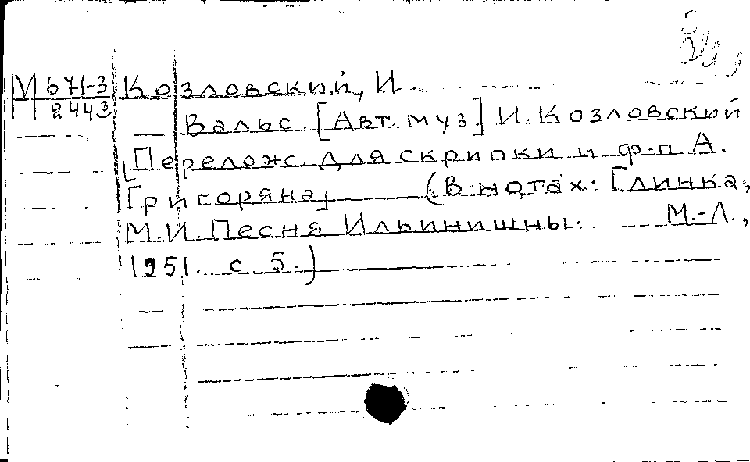 М 671-3
2443
Козловский, И.
Вальс. [Авт. муз.] И. Козловский
[Перелож. для скрипки и ф.-п. А.
Григоряна] (В нотах: Глинка,
М.И. Песня Ильинишны. М.-Л.,
1951. с. 5.)